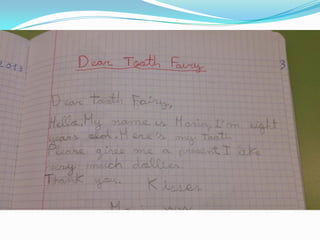 2013
Dear Tooth Fairy
3
Dear tooth Fairy,
Hello. My name is Maria, I'm eight
years old. Here's my tooth
Please give me a present. I like
very much dollies.
Thank you. Kisses